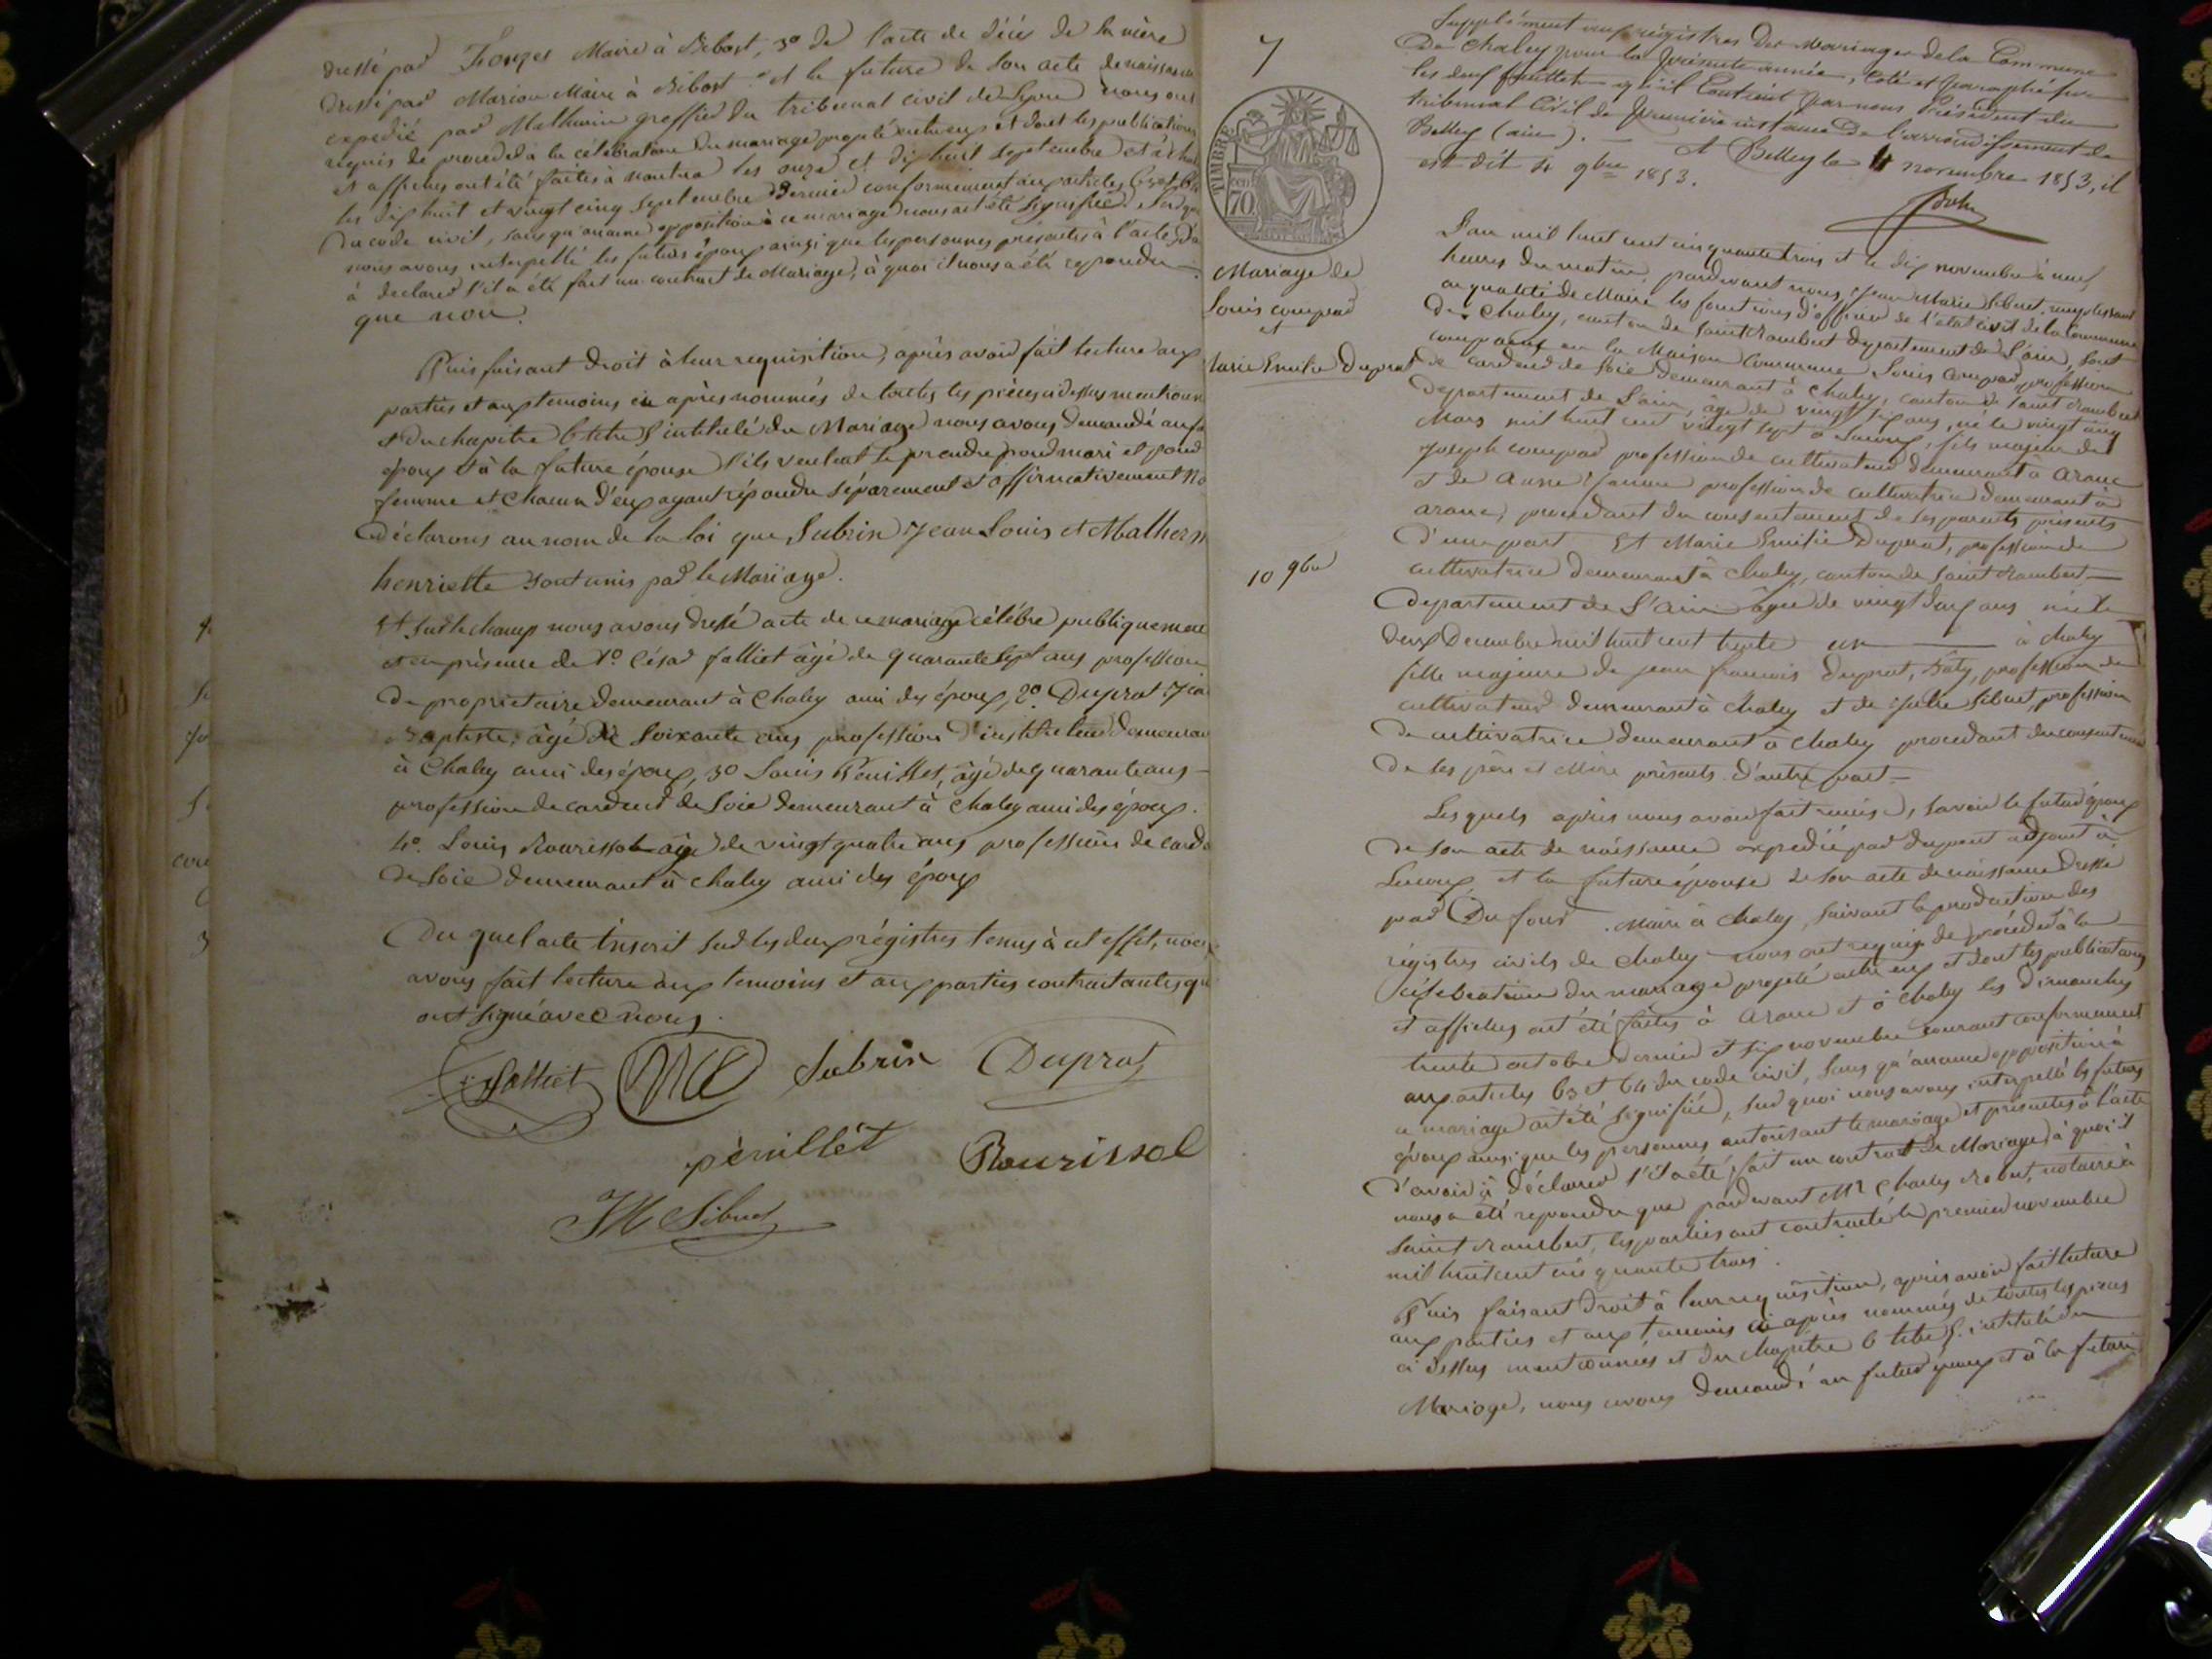 dressé par Maire à Bibost, 3º de l'acte de décès de la mère
dressé par Marion Maire à Bibost et la future de son acte de naissance
expédié par Mathurin greffier du tribunal civil de Lyon nous ont
requis de procéder à la célébration du mariage projeté entr'eux et dont les publications
et affiches ont été faites à les onze et dix huit septembre et à
les dix huit et vingt cinq septembre dernier conformément aux articles 63 et 64
du code civil, sans qu'aucune opposition à ce mariage nous ait été signifiée. Sur quoi
nous avons interpellé les futurs époux ainsi que les personnes présentes à l'acte d'a
à déclarer s'il a été fait un contrat de Mariage, à quoi il nous a été repondu
que non.
Puis faisant droit à leur requisition, après avoir fait lecture aux
parties et aux temoins ci après nommés de toutes les pièces ci dessus mentionn
et du chapitre 6 titre 5 intitulé du Mariage nous avons demandé au f
époux et à la future épouse s'ils veulent se prendre pour mari et pour
femme et chacun d'eux ayant répondu séparement et affirmativement No
déclarons au nom de la loi que Subrin Jean Louis et Mathern
henriette sont unis par le Mariage.
Et sur le champ nous avons dressé acte de ce mariage célébré publiquement
et en présence de 1º César falliet âgé de quarante sept ans profession
de propriétaire demeurant à Chaley ami des époux, 2º. Duprat Jea
Baptiste, âgé de soixante ans profession d'instituteur demeuran
à Chaley ami des époux, 3º Louis Penillet, âgé de quarante ans
profession de cardeur de soie demeurant à Chaley ami des époux.
4º. Louis Rourissol âgé de vingt quatre ans profession de card
de soie demeurant à Chaley ami des époux
Du quel acte inscrit sur les deux régistres tenus à cet effet, nous
avons fait lecture aux temoins et aux parties contractantes qu
ont signé avec nous.
falliet Subrin Duprat
pènillèt Rourissol
JM Sibuet
7
TIMBRE
70 cen
Mariage de
Louis compar
et
Marie Emilie Duprat
10 9bre
Supplément aux régistres des Mariages de la Commune
de Chaley pour la présente année, coté et paraphé sur
les deux feuillets qu'il contient par nous Président du
tribunal Civil de première instance de l'arrondissement de
Belley (ain). — A Belley le 4 novembre 1853, il
est dit 4 9bre 1853.
L'an mil huit cent cinquante trois et le dix novembre à neuf
heures du matin, pardevant nous Jean Marie Sibuet remplissant
en qualité de Maire les fonctions d'officier de l'état civil de la Commune
de Chaley, canton de saint rambert département de l'ain, sont
comparus en la Maison Commune Louis Compar profession
de cardeur de soie demeurant à Chaley, canton de saint rambert
département de l'ain, âgé de vingt six ans, né le vingt cinq
Mars mil huit cent vingt sept à fils majeur de
Joseph compar profession de cultivateur demeurant à Aranc
et de Anne profession de cultivatrice demeurant à
aranc, procédant du consentement de ses parents présents
d'une part Et Marie Emilie Duprat, profession de
cultivatrice demeurant à Chaley, canton de saint rambert —
département de l'Ain âgée de vingt deux ans née le
deux Decembre mil huit cent trente un — à Chaley
fille majeure de jean francois Duprat, profession de
cultivateur demeurant à Chaley et de Julie Sibuet, profession
de cultivatrice demeurant à Chaley procédant du consentement
de ses père et Mère présents d'autre part —
Lesquels après nous avoir fait remise, savoir le futur époux
de son acte de naissance expédié par dupont adjoint à
et la future épouse de son acte de naissance dressé
par Dufour. Maire à Chaley, suivant la production des
régistres civils de Chaley nous ont requis de procéder à la
célébration du mariage projeté entr'eux et dont les publications
et affiches ont été faites à Aranc et à Chaley les dimanches
trente octobre dernier et six novembre courant conformement
aux articles 63 et 64 du code civil, sans qu'aucune opposition à
ce mariage ait été signifiée, sur quoi nous avons interpellé les futurs
époux ainsi que les personnes autorisant le mariage et présentes à l'acte
d'avoir à déclarer s'il a été fait un contrat de Mariage, à quoi il
nous a été repondu que pardevant Mr Charles robert, notaire à
saint rambert, les parties ont contracté le premier novembre
mil huit cent cinquante trois.
Puis faisant droit à leur requisition, après avoir fait lecture
aux parties et aux temoins ci après nommés de toutes les pièces
ci dessus mentionnées et du chapitre 6 titre 5. intitulé du
Mariage, nous avons demandé au futur époux et à la future